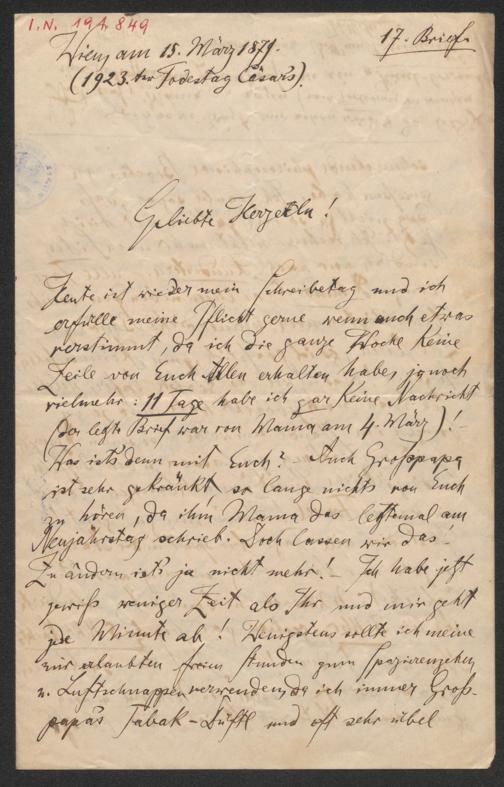 I.N. 194.849
17. Brief.
Wien, am 15. März 1879.
(1923.ter Todestag Cäsars).
Geliebte Herzeltn!
Heute ist wieder mein Schreibetag und ich
erfülle meine Pflicht gerne wenn auch etwas
verstimmt, da ich die ganze Woche keine
Zeile von Euch Allen erhalten habe, ja noch
vielmehr: 11 Tage habe ich gar keine Nachricht
(der letzte Brief war von Mama am 4. März)! –
Was ist's denn mit Euch? Auch Großpapa
ist sehr gekränkt, so lange nichts von Euch
zu hören, da ihm Mama das letztemal am
Neujahrstag schrieb. Doch lassen wir das! –
Zu ändern ist's ja nicht mehr! – Ich habe jetzt
gewiß weniger Zeit als Ihr und mir geht
jede Minute ab! Wenigstens sollte ich meine
mir erlaubten freien Stunden zum Spazierengehen
u. Luftschnappen verwenden, da ich immer Groß-
papa's Tabak-Düftl und oft sehr übel